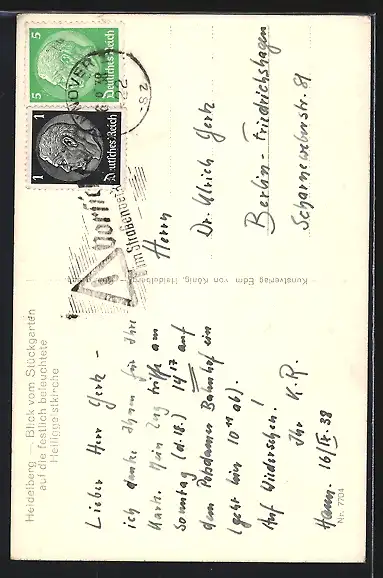 Heidelberg — Blick vom Stückgarten
auf die festlich beleuchtete
Heiliggeistkirche
Lieber Herr Gertz —
ich danke Ihnen für Ihre
Karte. Mein Zug trifft am
Sonntag (d. 18.) 14 17 auf
dem Potsdamer Bahnhof ein
(geht hier 10 11 ab).
Auf Wiedersehen!
Ihr K. R.
Hann. 16/IX. 38
Nr. 7704
Kunstverlag Edm. von König, Heidelberg
5 Deutsches Reich 5
1 Deutsches Reich 1
HANNOVER
Vorsicht
im Straßenverkehr
Herrn
Dr. Ulrich Gertz
Berlin-Friedrichshagen
Scharnweberstr. 81